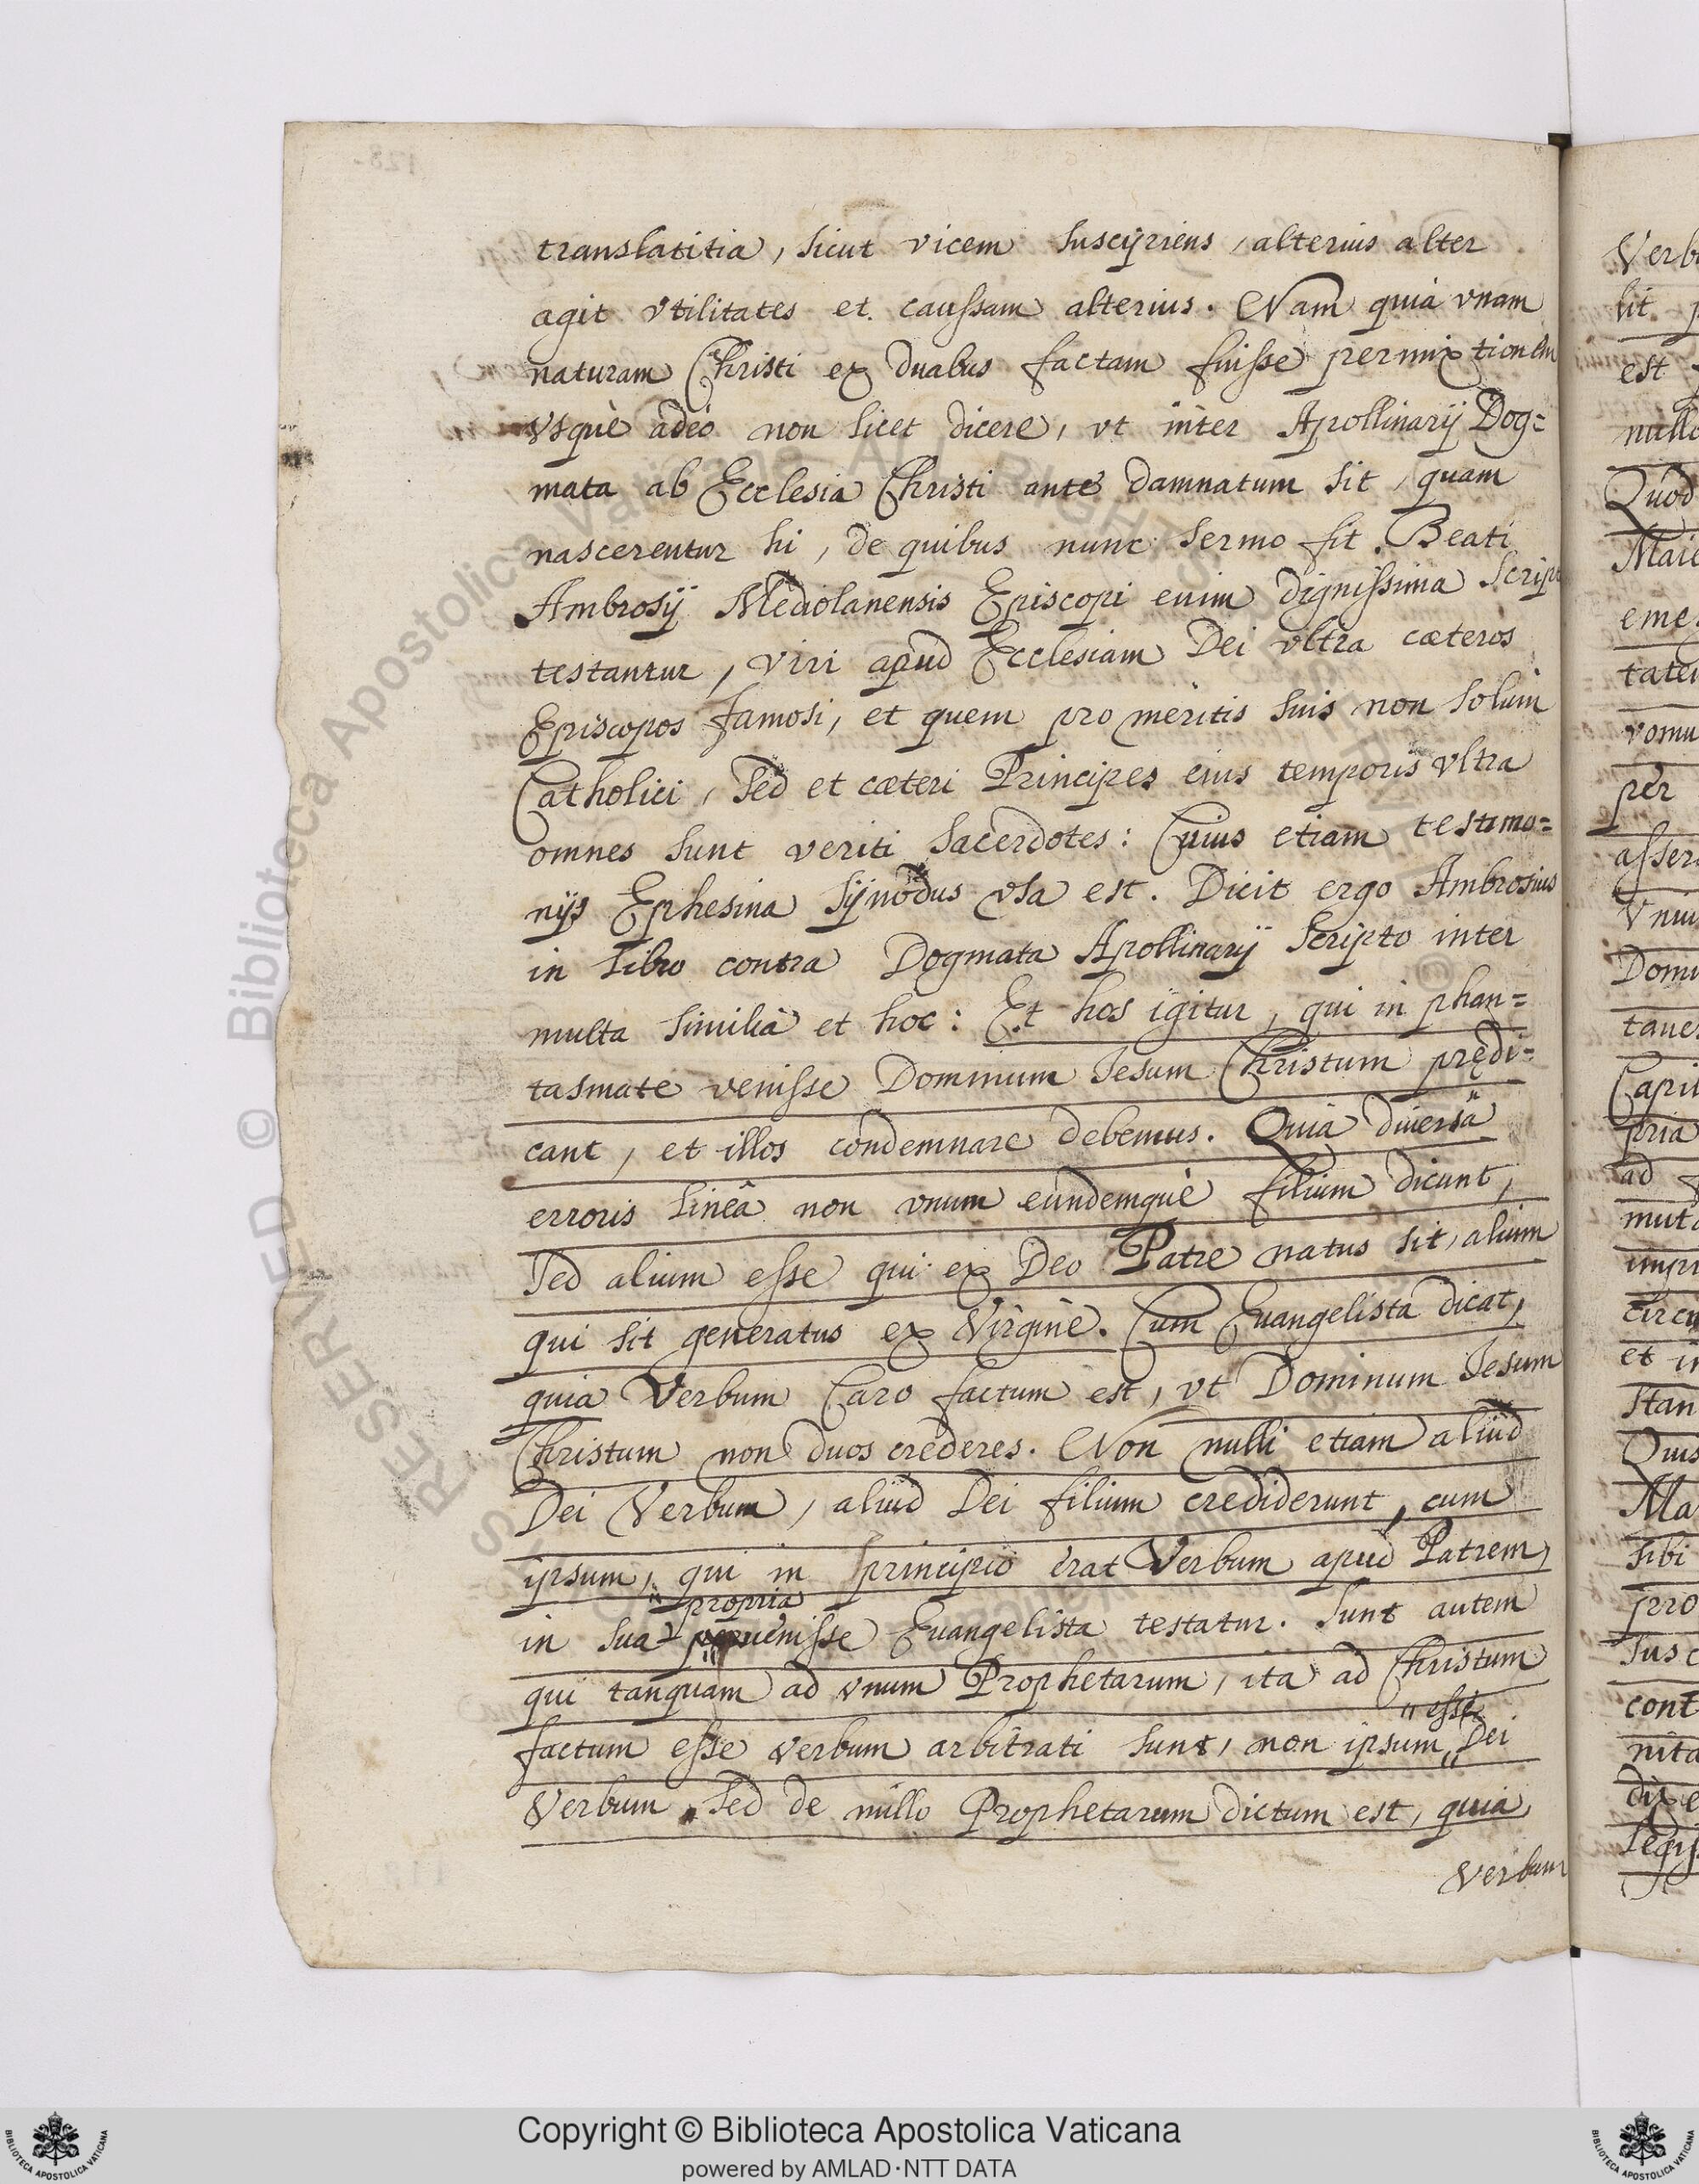 translatitia, sicut vicem suscipiens, alterius alter
agit vtilitates et caussam alterius. Nam quia vnam
naturam Christi ex duabus factam fuisse permixtionem
vsquè adeò non licet dicere, vt inter Apollinarij Dog=
mata ab Ecclesia Christi ante damnatum sit, quam
nascerentur hi, de quibus nunc sermo fit. Beati
Ambrosij Mediolanensis Episcopi enim dignissima Script
testantur, viri apud Ecclesiam Dei vltra cæteros
Episcopos famosi, et quem pro meritis suis non solùm
Catholici, sed et cæteri Principes eius temporis vltra
omnes sunt veriti sacerdotes: Cuius etiam testimo=
nijs Ephesina Sijnodus vsa est. Dicit ergo Ambrosius
in libro contra Dogmata Apollinarij scripto inter
multa similia et hoc: Et hos igitur, qui in phan=
tasmate venisse Dominum Iesum Christum prędi=
cant, et illos condemnare debemus. Quia diuersâ
erroris lineâ non vnum eundemquè filium dicunt,
sed alium esse qui ex Deo Patre natus sit, alium
qui sit generatus ex Virginè. Cum Euangelista dicat,
quia Verbum Caro factum est, vt Dominum Iesum
Christum non duos crederes. Non nulli etiam aliud
Dei Verbum, aliud Dei filium crediderunt, cum
ipsum, qui in principio erat Verbum apud Patrem,
propria
in sua venisse Euangelista testatur. Sunt autem
qui tanquam ad vnum Prophetarum, ita ad Christum
esse
factum esse verbum arbitrati sunt, non ipsum Dei
Verbum. Sed de nullo Prophetarum dictum est, quia
Verbum
Verb
sit p
est
nullo
Quod
Maie
eme
tatem
vomu
per
asser
Vniu
Domi
tane
Capi
pria
ad
muta
impr
circu
et in
stan
Quis
Ma
sibi
pro
susc
cont
nita
dix
Copyright © Biblioteca Apostolica Vaticana
powered by AMLAD·NTT DATA
BIBLIOTECA APOSTOLICA VATICANA
BIBLIOTECA APOSTOLICA VATICANA